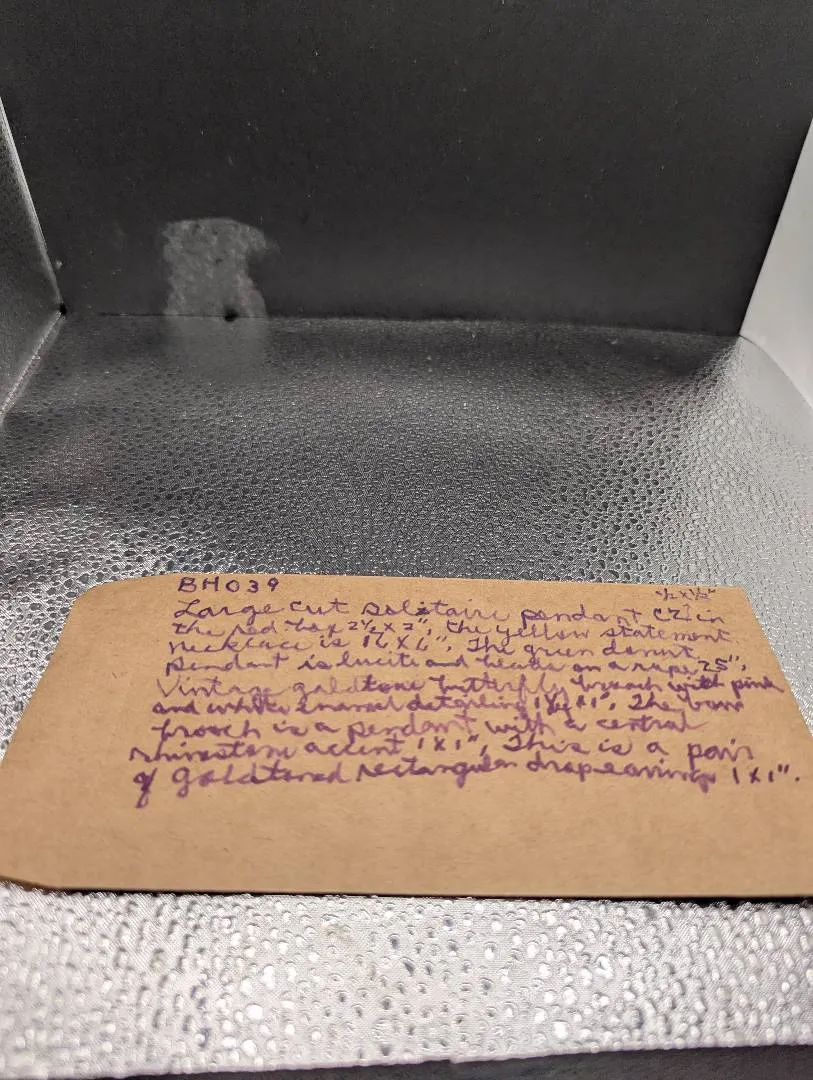 BH039
1/2 x 1/2"
Large cut solitaire pendant CZ in
the red box 2 1/2 x 2", the yellow statement
necklace is 16 x 6", The green donut
pendant is lucite and beads on a rope 25",
Vintage goldtone butterfly broach with pink
and white enamel detailing x 1", The bow
brooch is a pendant with a central
rhinestone accent 1 x 1", This is a pair
of goldtoned rectangular drop earrings 1 x 1".